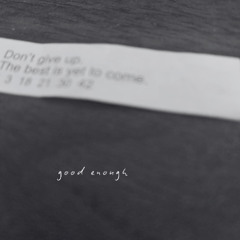 Don't give up.
The best is yet to come.
3 18 21 30 42
good enough